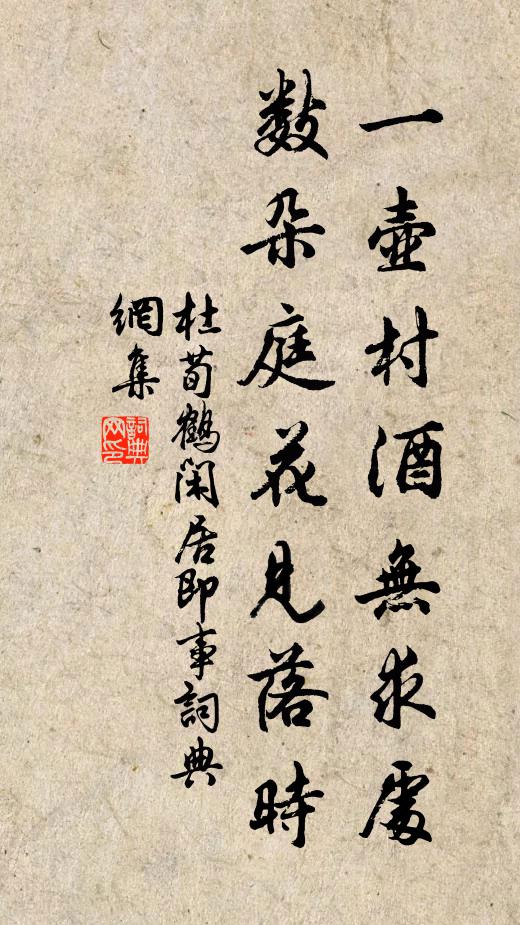 一壺村酒無求處
數朵庭花見落時
杜荀鶴閑居即事詞典
網集
詞典
网印